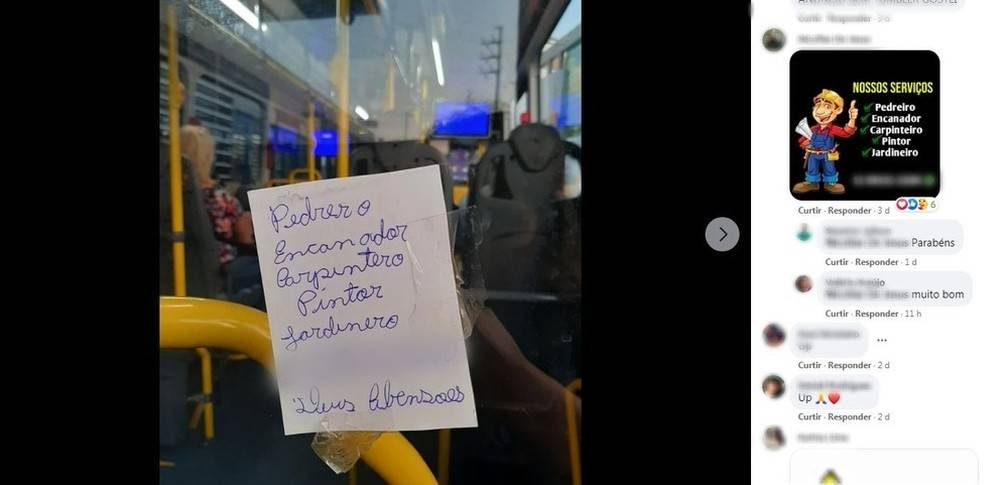 Pedrero
Encanador
Carpintero
Pintor
Jardinero
Deus Abensoes
Curtir · Responder
NOSSOS SERVIÇOS
Pedreiro
Encanador
Carpinteiro
Pintor
Jardineiro
Curtir · Responder · 3 d
6
Parabéns
Curtir · Responder · 1 d
muito bom
Curtir · Responder · 11 h
Curtir · Responder · 2 d
Up 🙏❤️
Curtir · Responder · 2 d